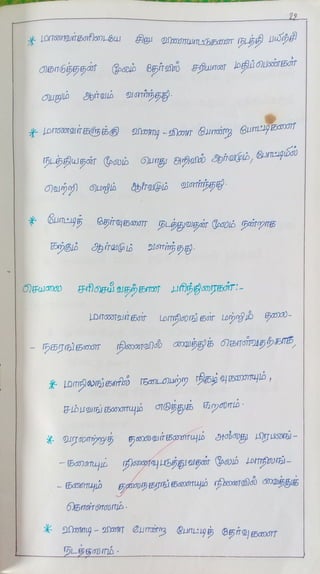 29
* மாணவர்களிடையே சிறு விளையாட்டுகளை நடத்தி பயிற்சி
கொடுத்ததன் மூலம் தேர்வில் சரியான மதிப்பெண்கள்
பெறும் ஆர்வம் வளர்ந்தது.
* மாணவர்களுக்கு வினாடி-வினா போன்ற போட்டிகளை
நடத்தியதன் மூலம் பொது அறிவில் ஆர்வமும், போட்டியில்
வெற்றி பெறும் ஆர்வமும் வளர்ந்தது.
* போட்டித் தேர்வுகளை நடத்துவதன் மூலம் நன்றாக
கற்கும் ஆர்வமும் வளர்ந்தது.
செயலை சரிசெய்வதற்கான பரிந்துரைகள்:-
மாணவர்கள் மாநிலங்கள் மற்றும் தலை-
-நகரங்களை நினைவில் வைத்துக் கொள்வதற்காக,
* மாநிலங்களில் நடைபெற்ற நிகழ்வுகளையும்,
சம்பவங்களையும் எடுத்துக் கூறலாம்.
* வரலாற்றுத் தலைவர்களையும் அல்லது பிரபலங்-
-களையும் நினைவுபடுத்துவதன் மூலம் மாநிலங்-
-களையும் தலைநகரங்களையும் நினைவில் வைத்துக்
கொள்ளலாம்.
* வினாடி-வினா போன்ற போட்டித் தேர்வுகளை
நடத்தலாம்.